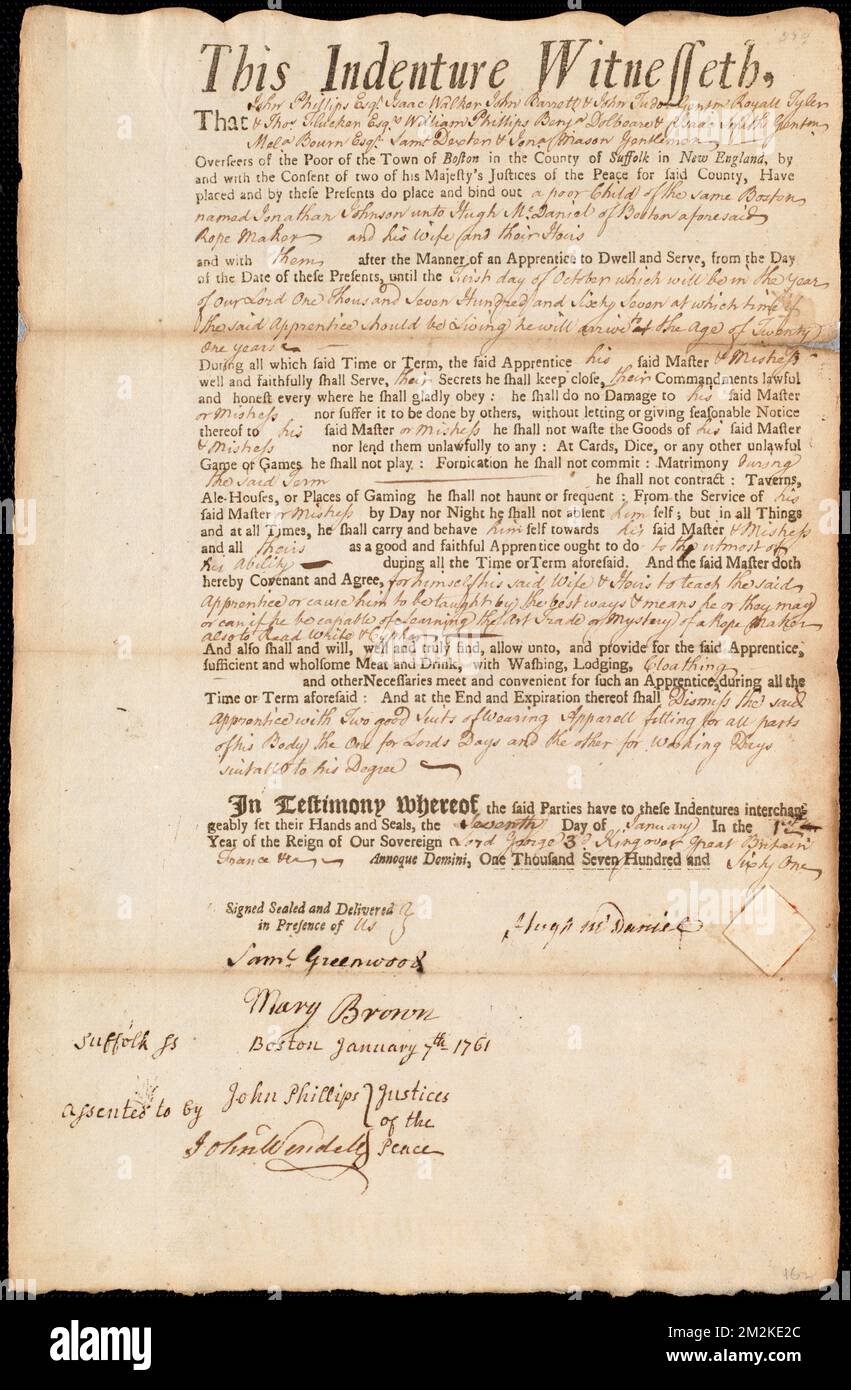 This Indenture Witnesseth,
John Phillips Esqr. Isaac Walker John Barrett & John Tudor Gentmn. Royall Tyler
That & Thos. Flucker Esqrs. William Phillips Benja. Dolbeare & Isaac Smith Gentmn.
Mela. Bourn Esqr. Saml. Dexter & Jona. Mason Gentlemen
Overseers of the Poor of the Town of Boston in the County of Suffolk in New England, by
and with the Consent of two of his Majesty's Justices of the Peace for said County, Have
placed and by these Presents do place and bind out a poor Child of the same Boston
named Jonathan Johnson unto Hugh McDaniel of Boston aforesaid
Rope Maker and his Wife and their Heirs
and with them after the Manner of an Apprentice to Dwell and Serve, from the Day
of the Date of these Presents, until the First day of October which will be in the Year
of our Lord One Thousand Seven Hundred and Sixty Seven at which time if
the said Apprentice should be Living he will arrive at the Age of Twenty
One years
During all which said Time or Term, the said Apprentice his said Master & Mistress
well and faithfully shall Serve, their Secrets he shall keep close, their Commandments lawful
and honest every where he shall gladly obey : he shall do no Damage to his said Master
or Mistress nor suffer it to be done by others, without letting or giving seasonable Notice
thereof to his said Master or Mistress he shall not waste the Goods of his said Master
& Mistress nor lend them unlawfully to any : At Cards, Dice, or any other unlawful
Game or Games he shall not play : Fornication he shall not commit : Matrimony during
the said Term he shall not contract : Taverns,
Ale-Houses, or Places of Gaming he shall not haunt or frequent : From the Service of his
said Master or Mistress by Day nor Night he shall not absent him self ; but in all Things
and at all Times, he shall carry and behave him self towards his said Master & Mistress
and all theirs as a good and faithful Apprentice ought to do to the utmost of
his Ability during all the Time or Term aforesaid. And the said Master doth
hereby Covenant and Agree, for himself his said Wife & Heirs to teach the said
Apprentice or cause him to be taught by the best ways & means he or they may
or can if he be capable of Learning the Art Trade or Mystery of a Rope Maker
also to Read Write & Cypher
And also shall and will, well and truly find, allow unto, and provide for the said Apprentice,
sufficient and wholsome Meat and Drink, with Washing, Lodging, Cloathing
and other Necessaries meet and convenient for such an Apprentice, during all the
Time or Term aforesaid : And at the End and Expiration thereof shall Dismiss the said
Apprentice with Two good Suits of Wearing Apparell fitting for all parts
of his Body the One for Lords Days and the other for Working Days
suitable to his Degree
In Testimony whereof, the said Parties have to these Indentures interchan-
geably set their Hands and Seals, the Seventh Day of January In the 1st
Year of the Reign of Our Sovereign Lord George 3d King over Great Britain
France &ca Annoque Domini, One Thousand Seven Hundred and Sixty One
Signed Sealed and Delivered
in Presence of Us
Hugh McDaniel
Saml. Greenwood
Mary Brown
Suffolk ss Boston January 7th 1761
Assented to by John Phillips Justices
of the
John Wendell Peace
alamy
Image ID: 2M2KE2C
www.alamy.com